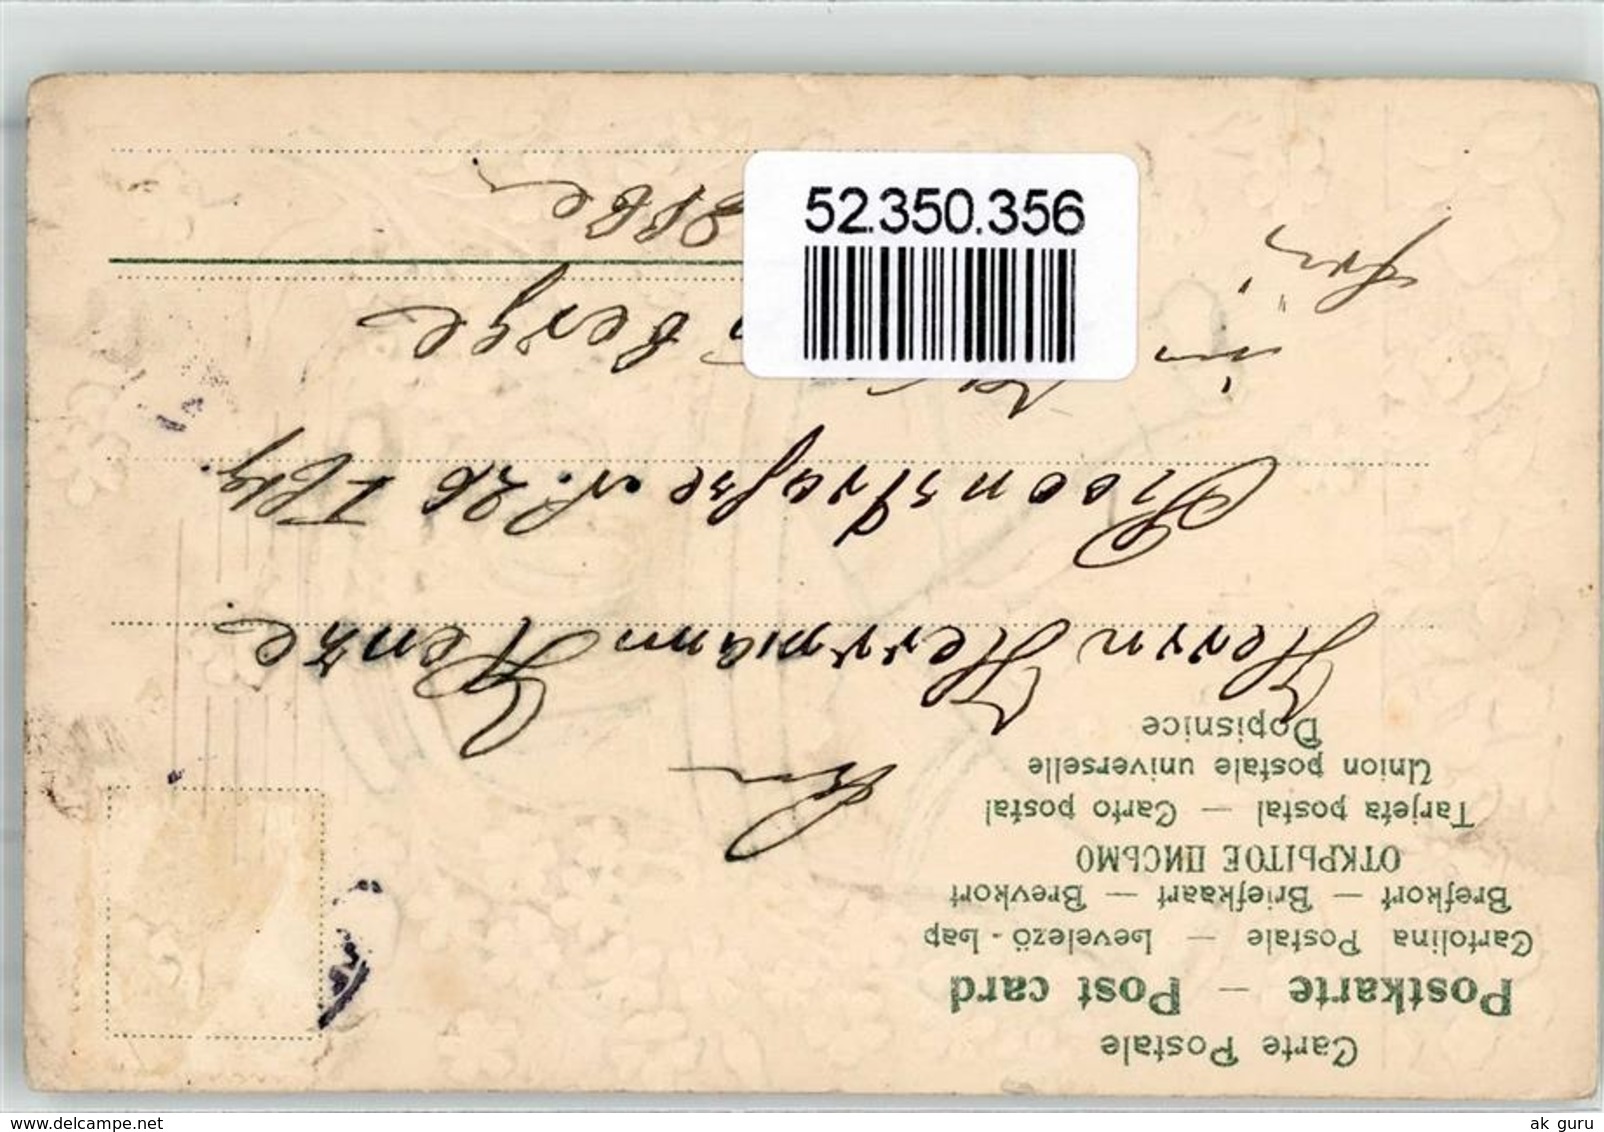 Carte Postale
Postkarte — Post card
Cartolina Postale — Levelező-Lap
Brefkort — Briefkaart — Brevkort
ОТКРЫТОЕ ПИСЬМО
Tarjeta postal — Carto postal
Union postale universelle
Dopisnice
Herrn Herrmann Henze
N. 26
in
berge
52.350.356
www.delcampe.net
ak_guru